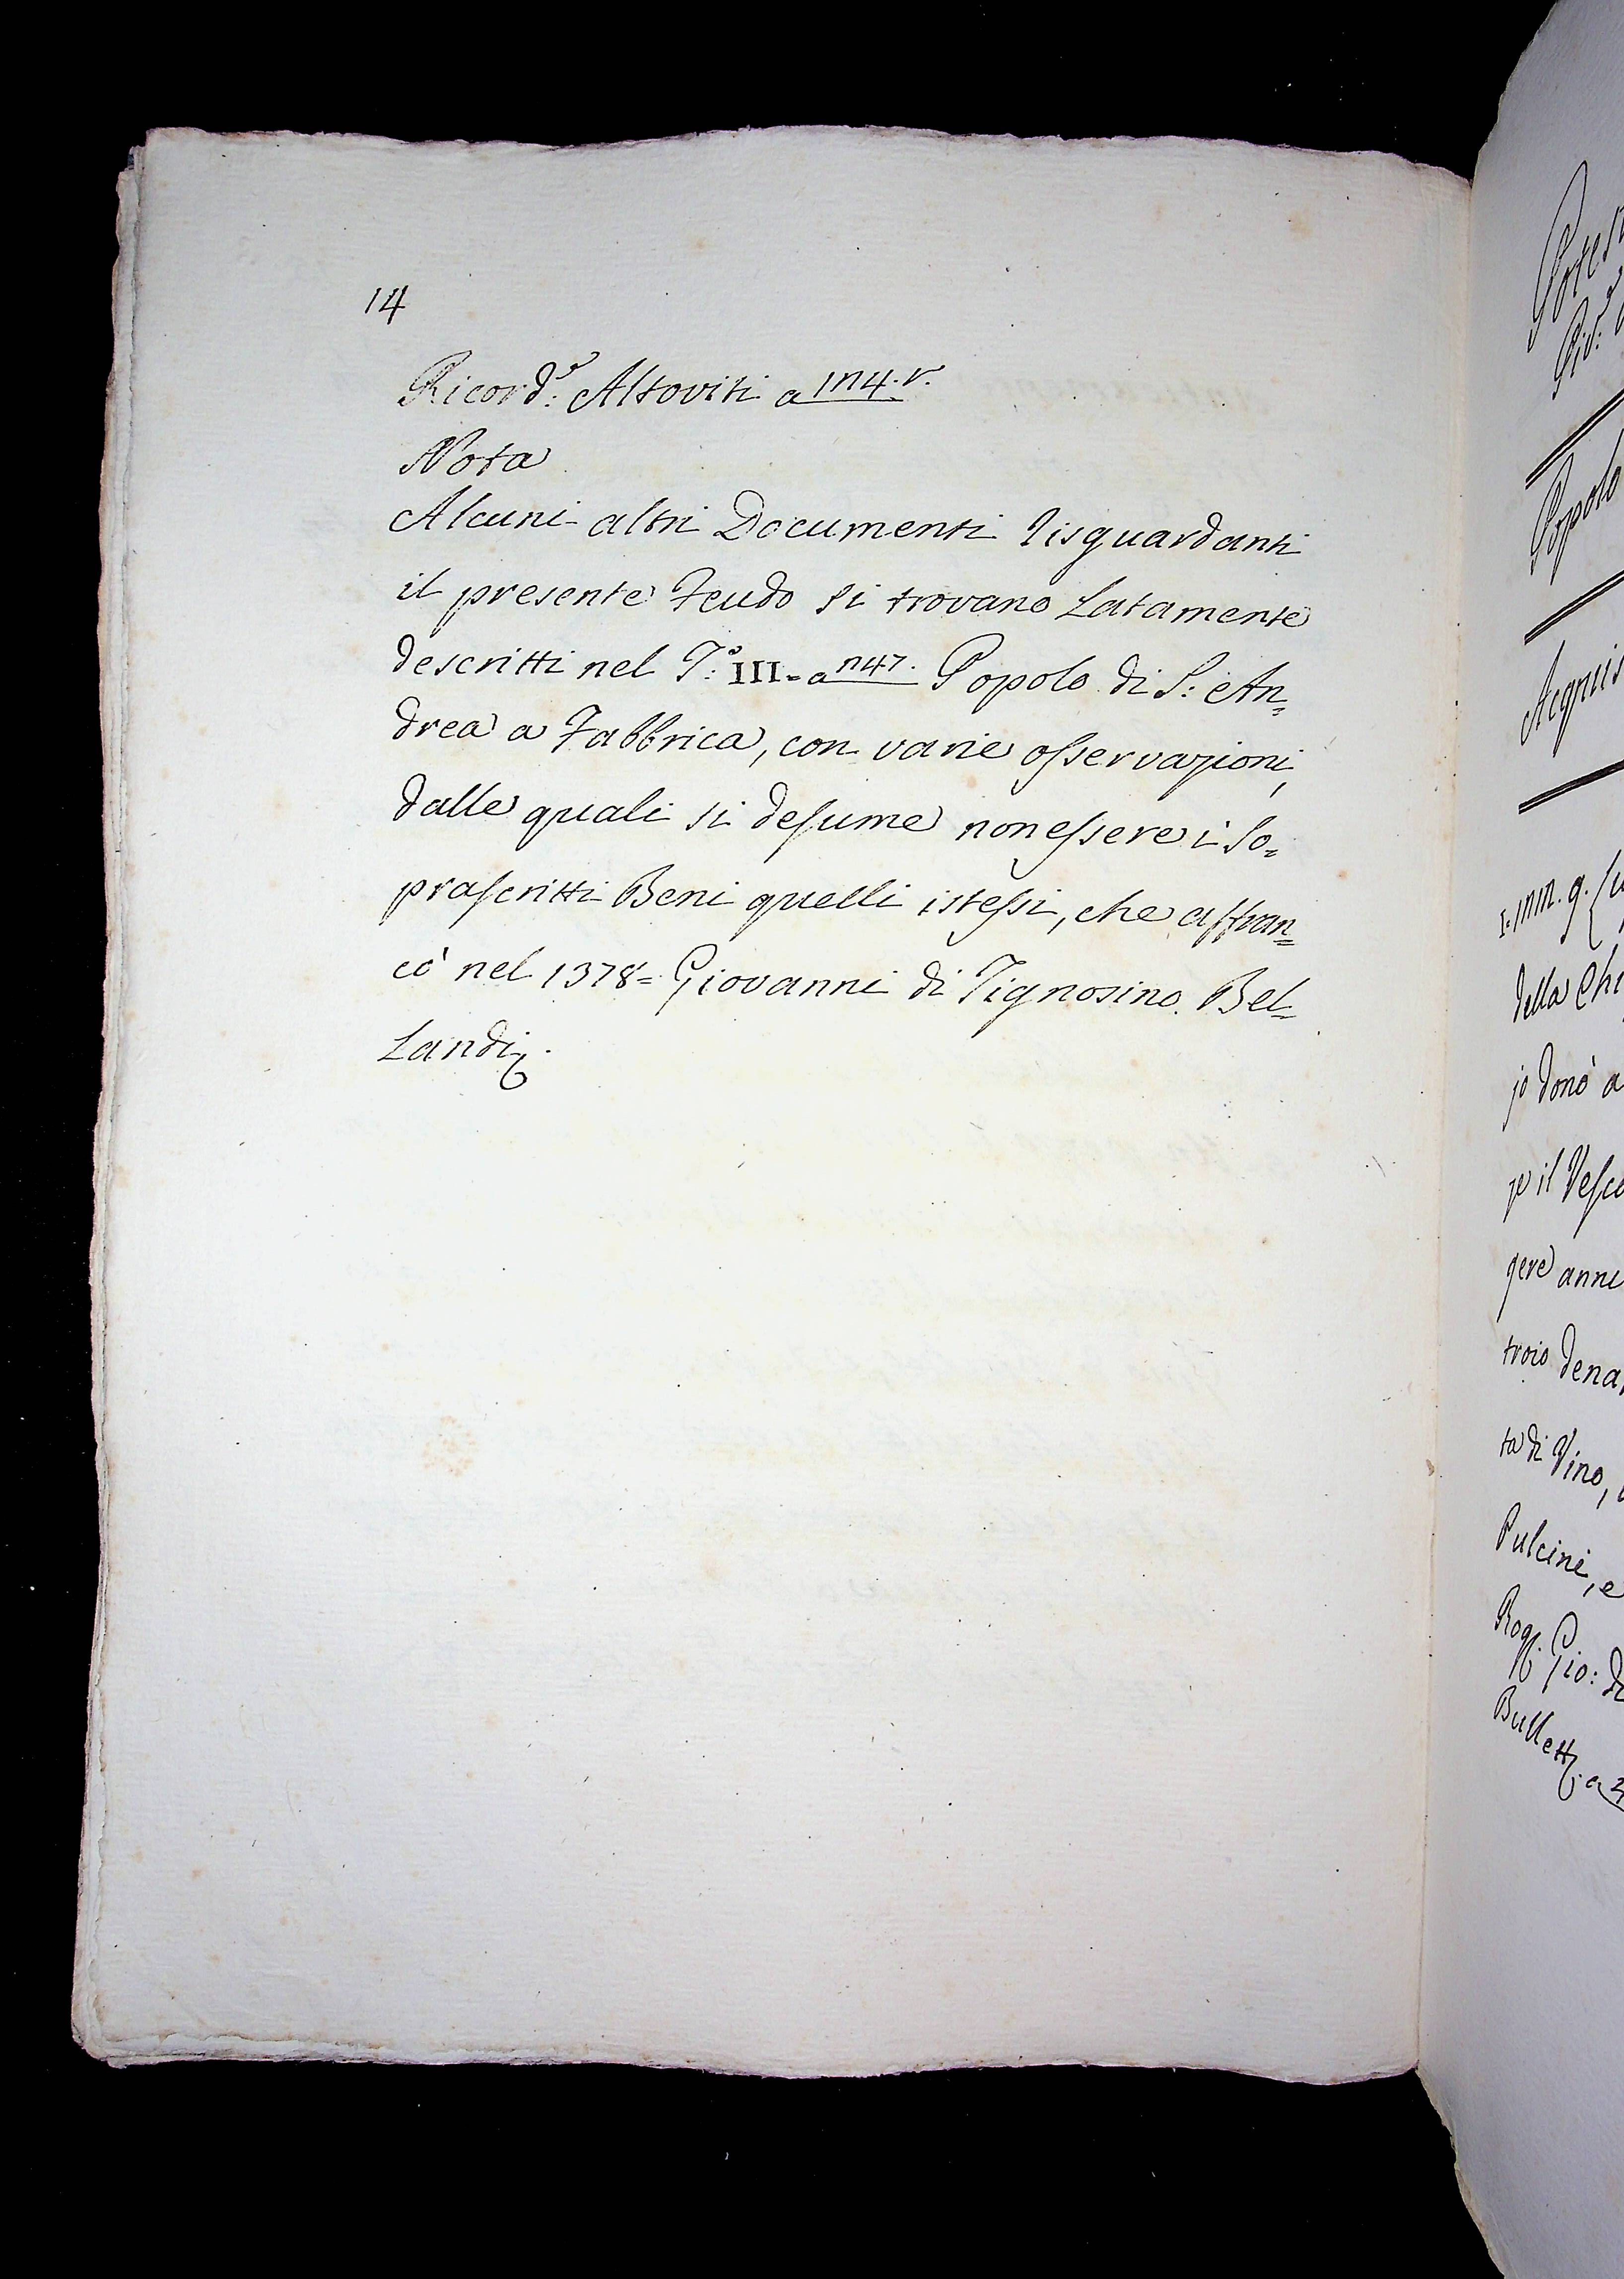 14
Ricord:e Altoviti a 1174. v.
Nota
Alcuni altri Documenti risguardanti
il presente Feudo si trovano Latamente
descritti nel T:o III. a 1147. Popolo di S: An=
drea a Fabbrica, con varie osservazioni,
dalle quali si desume non essere i So=
prascritti Beni quelli istessi, che affran=
cò nel 1378= Giovanni di Tignosino Bel=
Landi.
Popolo
Acquis
della Chi
jo donò a
p il Vesco
gere anni
troio dena
ta di Vino,
Pulcini, e
Rog. Gio: di
Bullett. a